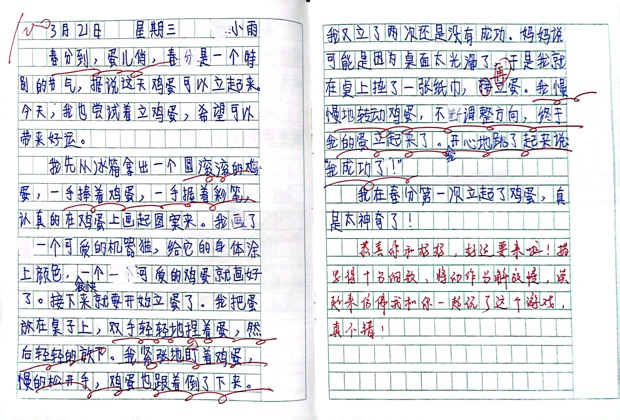 3月21日 星期三 小雨
春分到，蛋儿俏，春分是一个特
别的节气，据说这天鸡蛋可以立起来。
今天，我也尝试着立鸡蛋，希望可以
带来好运。
我先从冰箱拿出一个圆滚滚的鸡
蛋，一手捧着鸡蛋，一手握着彩笔，
认真的在鸡蛋上画起图案来。我画了
一个可爱的机器猫，给它的身体涂
上颜色，一个可爱的鸡蛋就画好
了。接下来就要开始立蛋了。我把蛋
放在桌子上，双手轻轻地捏着蛋，然
后轻轻的放下。我紧张地盯着鸡蛋，
慢的松开手，鸡蛋也跟着倒了下来。
我又立了两次还是没有成功。妈妈说
可能是因为桌面太光滑了，于是我就
在桌上垫了一张纸巾，再立蛋。我慢
慢地转动鸡蛋，不断调整方向，终于
我的蛋立起来了。开心地跳了起来说
"我成功了！"
我在春分第一次立起了鸡蛋，真
是太神奇了！
恭喜你呀，好运要来啦！描
写得十分细致，将动作分解放慢，读
起来仿佛我和你一起玩了这个游戏，
真不错！